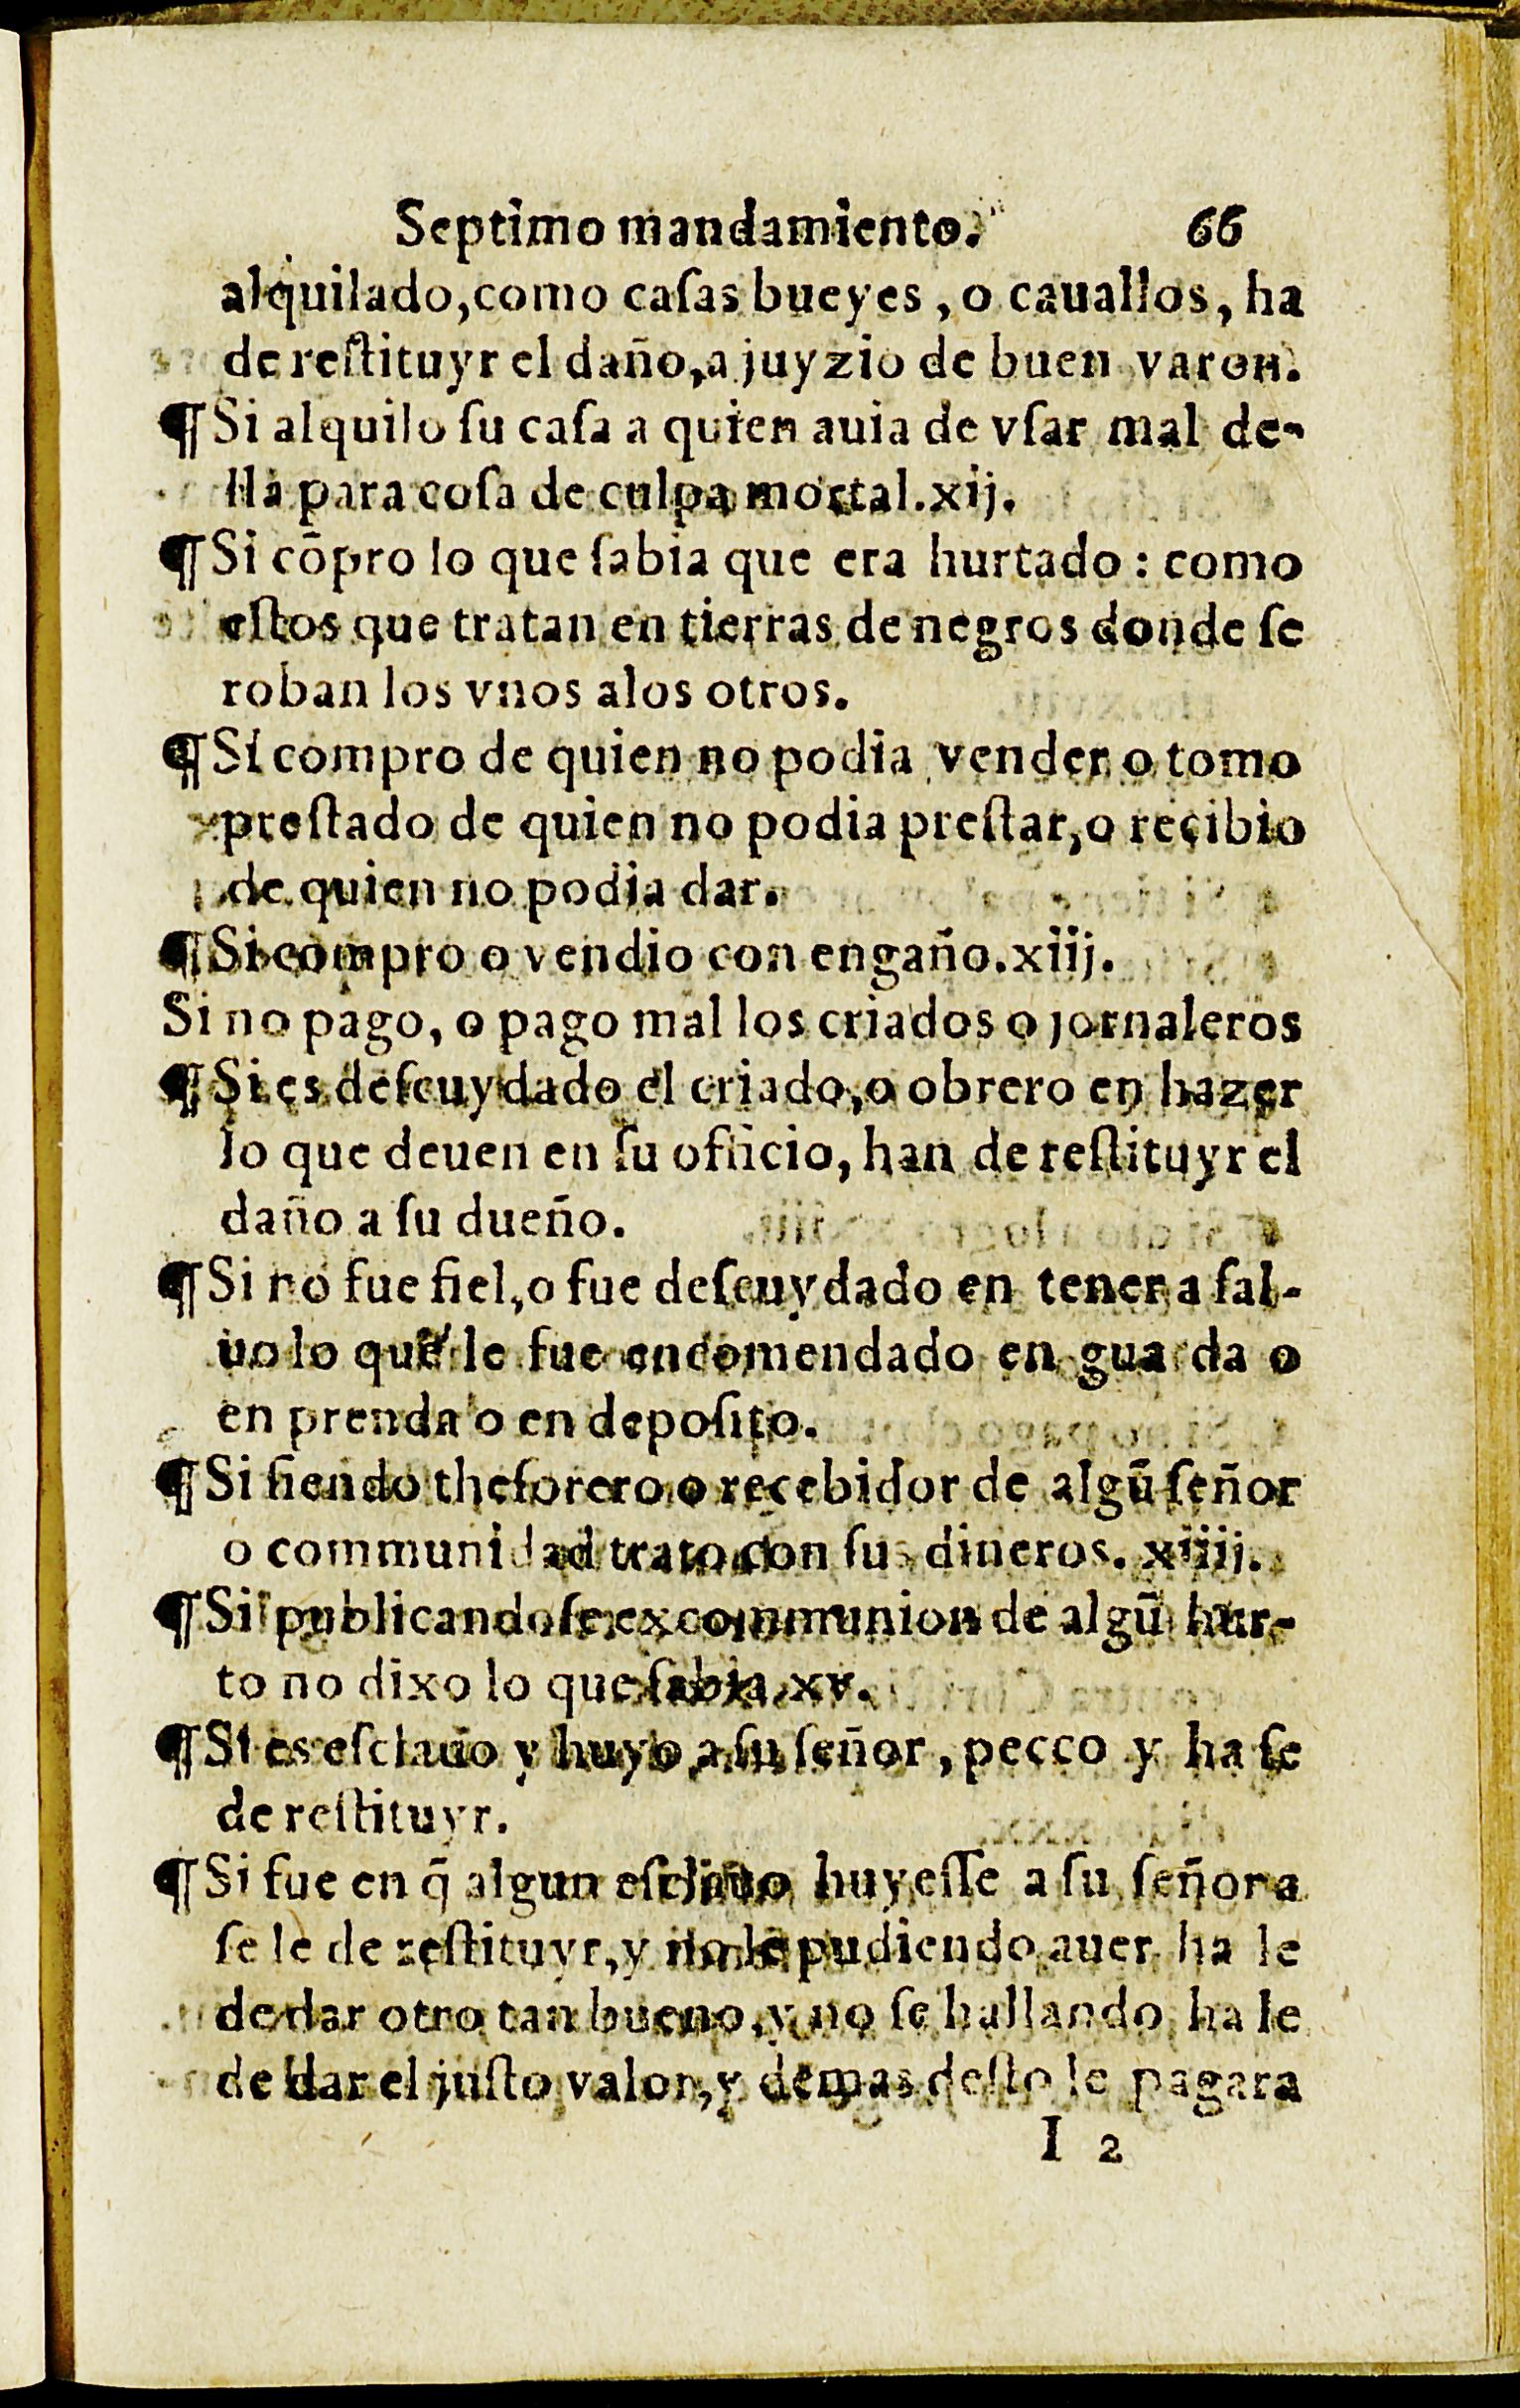 Septimo mandamiento. 66
alquilado,como caſas bueyes, o cauallos, ha
de reſtituyr el daño,a juyzio de buen varon.
¶Si alquilo ſu caſa a quien auia de vſar mal de-
lla para coſa de culpa mortal.xij.
¶Si cõpro lo que ſabia que era hurtado: como
eſtos que tratan en tierras de negros donde ſe
roban los vnos alos otros.
¶Si compro de quien no podia vender o tomo
preſtado de quien no podia preſtar,o recibio
de quien no podia dar.
¶Si compro o vendio con engaño.xiij.
Si no pago, o pago mal los criados o jornaleros
¶Si es deſcuydado el criado,o obrero en hazer
lo que deuen en ſu officio, han de reſtituyr el
daño a ſu dueño.
¶Si no fue fiel,o fue deſcuydado en tener a ſal-
uo lo que le fue encomendado en guarda o
en prenda o en depoſito.
¶Si ſiendo theſorero o recebidor de algũ ſeñor
o communidad trato con ſus dineros. xiiij.
¶Si publicandoſe excommunion de algũ hur-
to no dixo lo que ſabia.xv.
¶Si es eſclauo y huyo a ſu ſeñor, pecco y ha ſe
de reſtituyr.
¶Si fue en q̃ algun eſclauo huyeſſe a ſu ſeñor a
ſe le de reſtituyr,y no le pudiendo auer ha le
de dar otro tan bueno,y no ſe hallando ha le
de dar el juſto valor,y demas deſto le pagara
I 2